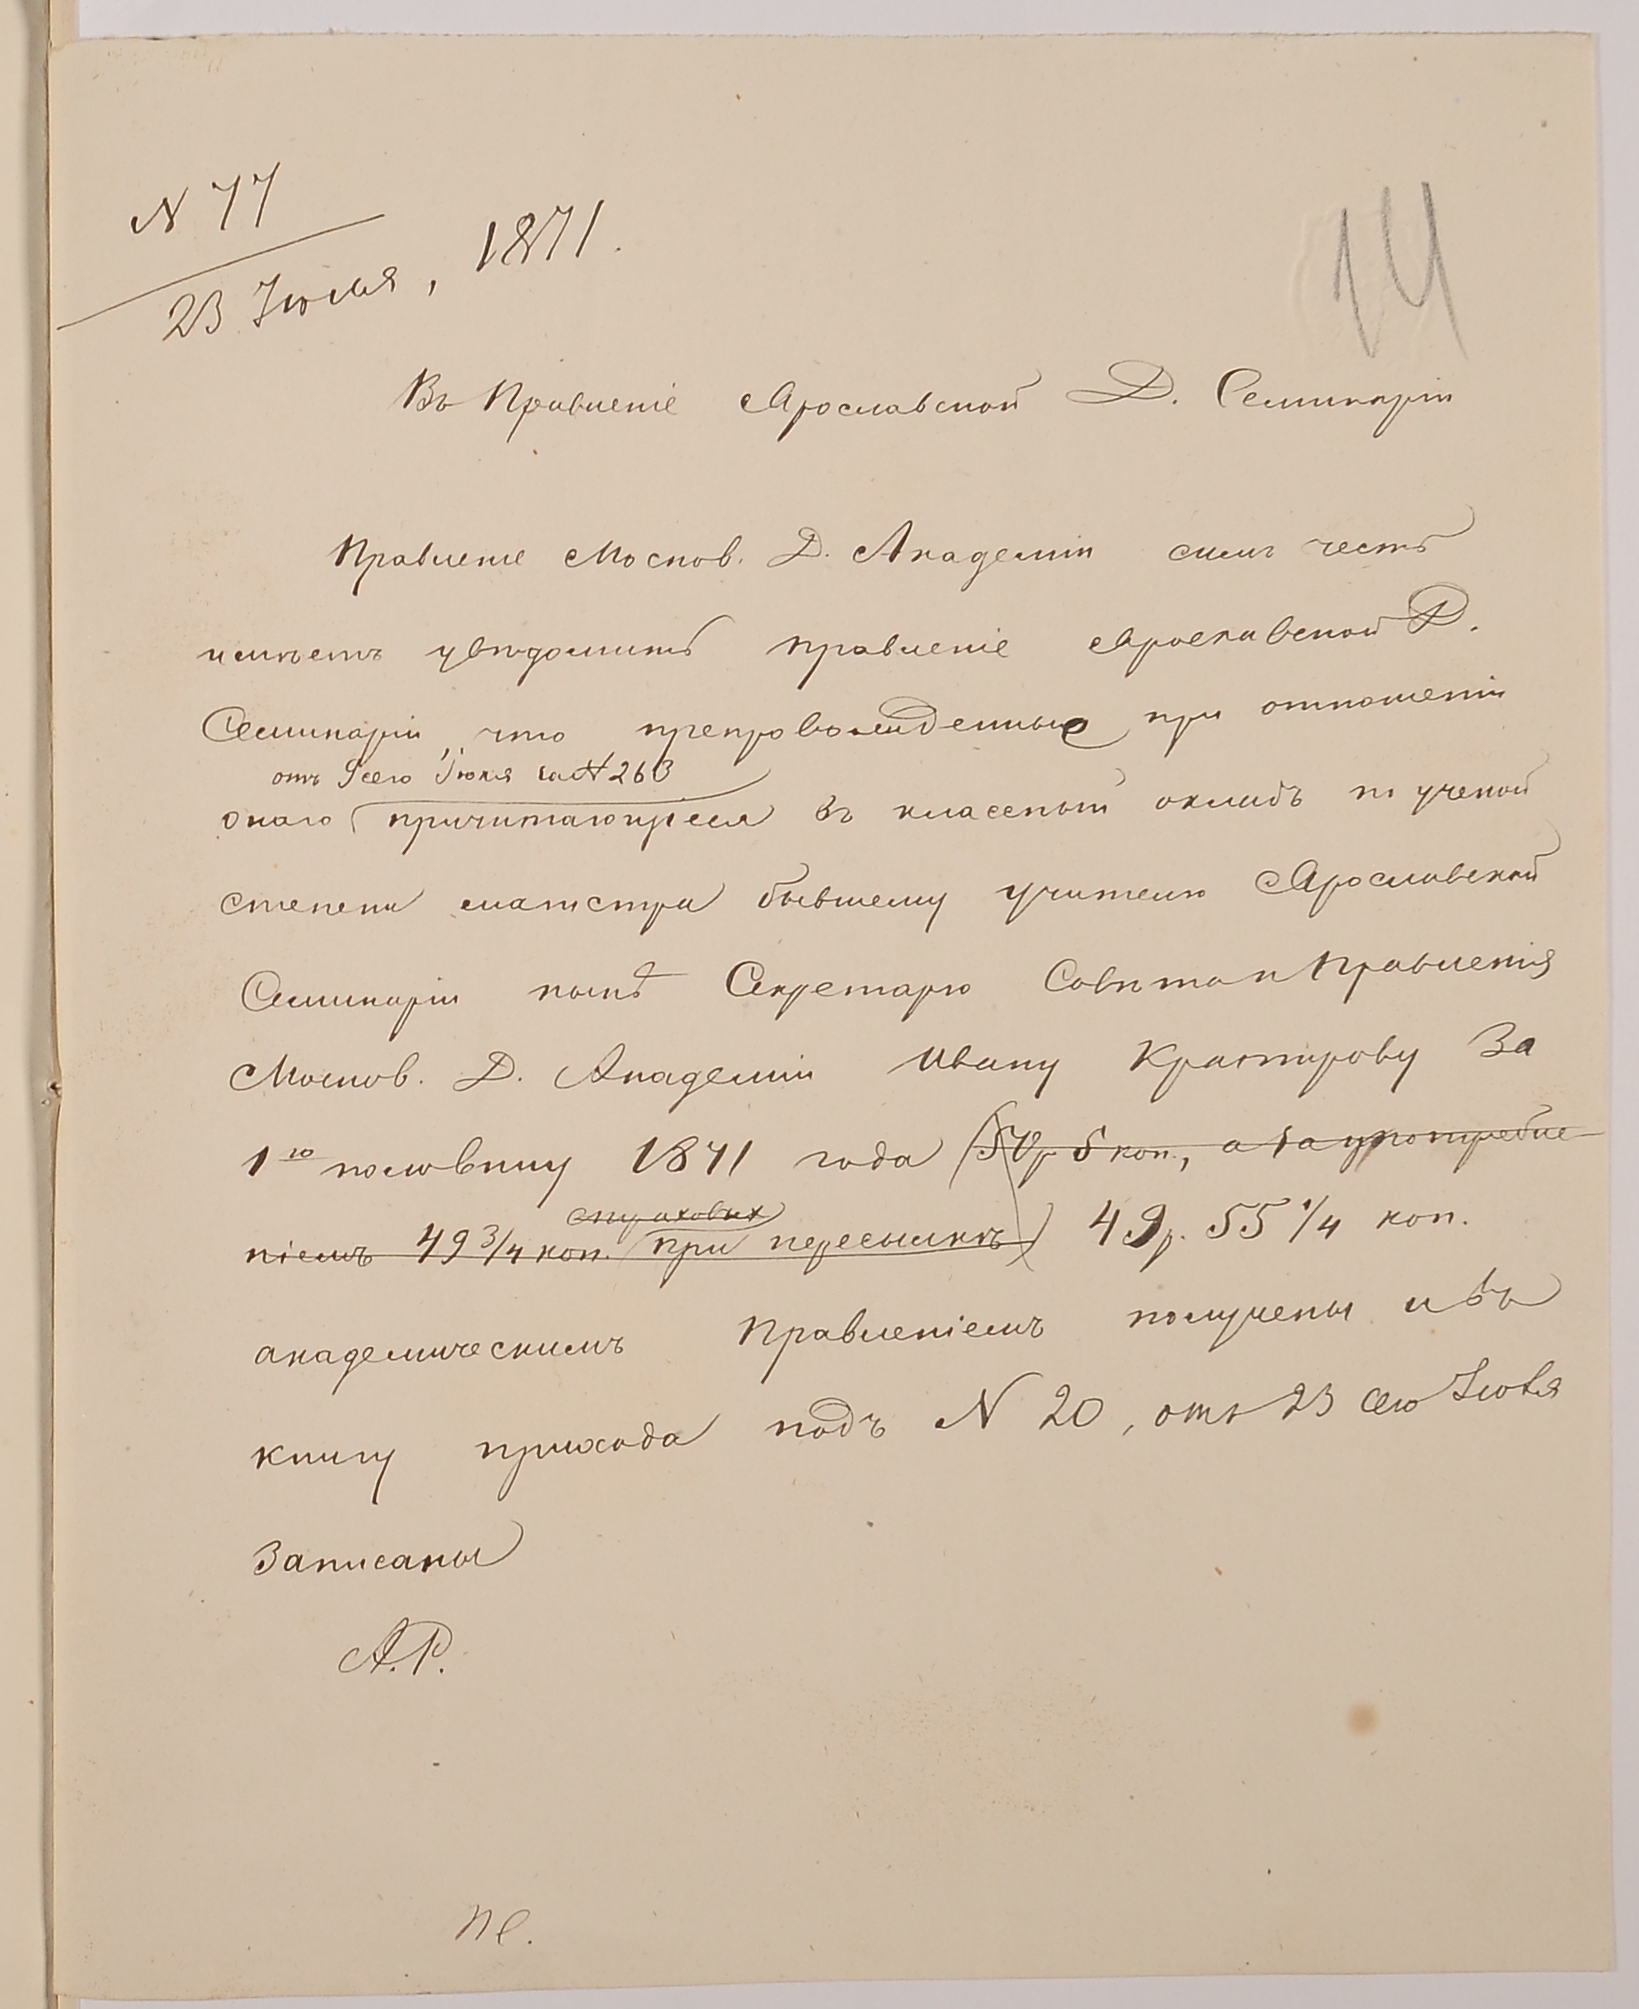 N 77
23 Июля, 1871.
14
Въ Правленіе Ярославской Д. Семинаріи
Правленіе Москов. Д. Академіи симъ честь
имѣетъ увѣдомить правленіе Ярославской Д.
Семинаріи, что препровожденные при отношеніи
отъ 9 сего Июля за N 263
онаго причитающіеся въ классный окладъ по ученой
степени магистра бывшему учителю Ярославской
Семинаріи нынѣ Секретарю Совѣта и Правленія
Москов. Д. Академіи Ивану Кратирову за
1ю половину 1871 года (50 р 5 коп., а за употребле
ніемъ 49 3/4 коп. при пересылкѣ) 49 р. 55 1/4 коп.
страховыхъ
академическимъ Правленіемъ получены и въ
книгу прихода подъ N 20, отъ 23 сего Июля
записаны
А.Р.